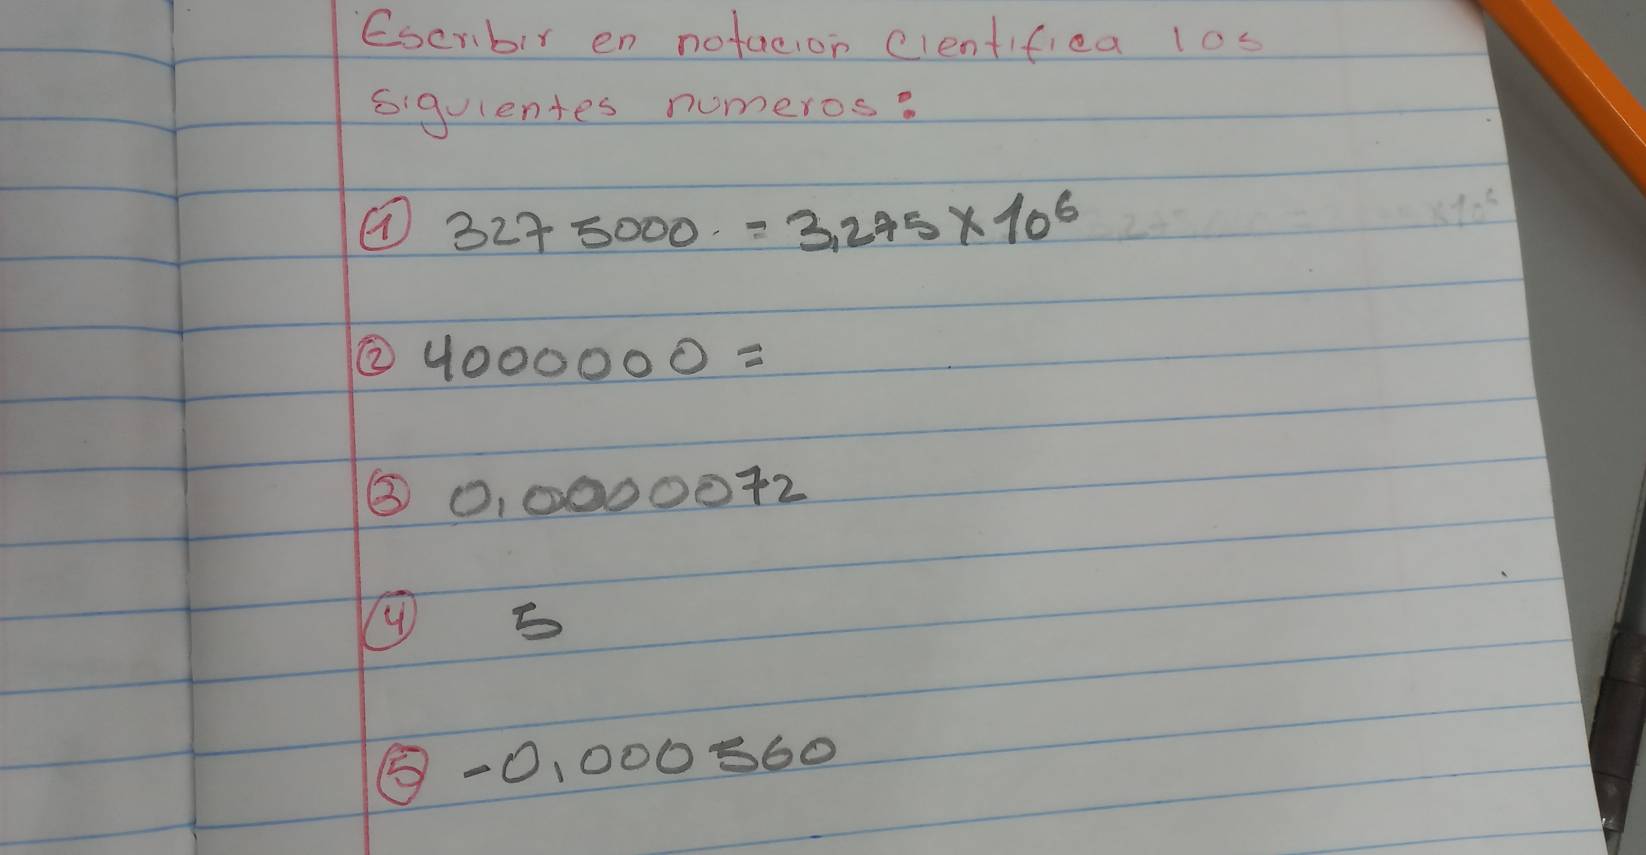 Escribir en notacion cientifica los
siguientes numeros:
① 3275000. = 3,275 x 10⁶
② 4000000 =
③ 0,00000072
④ 5
⑤ -0,000560